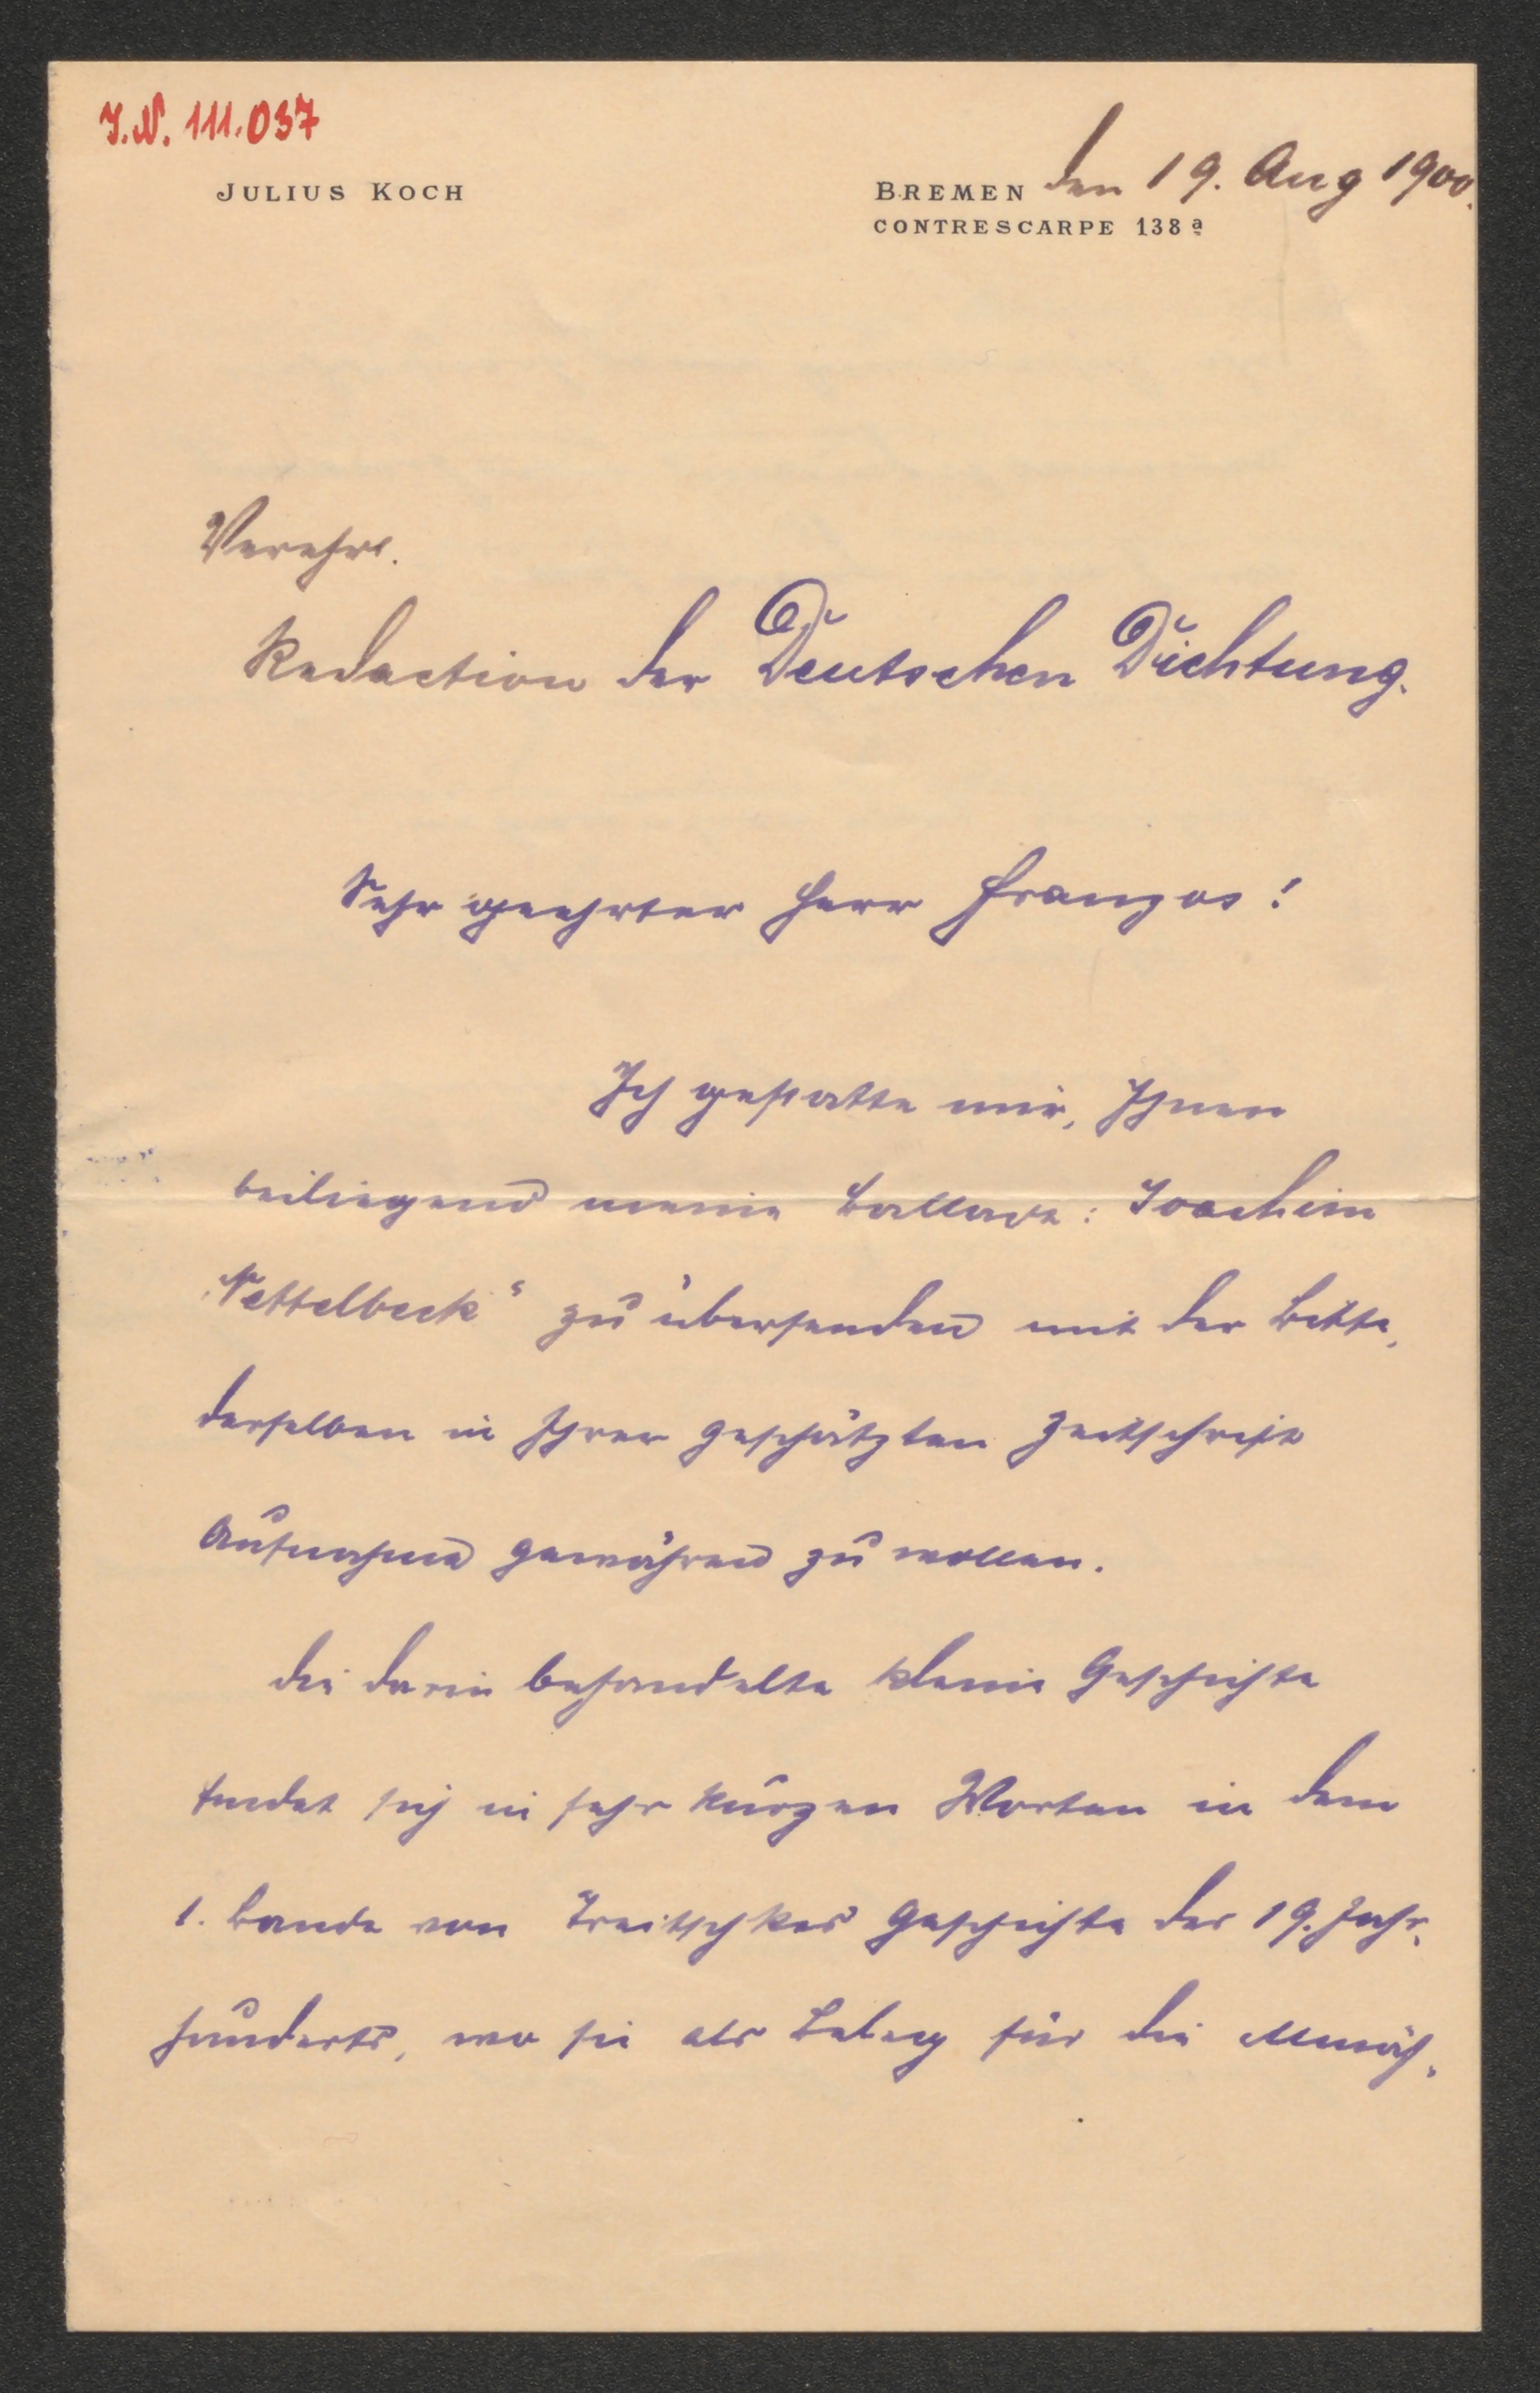 J.N. 111.037
JULIUS KOCH
BREMEN den 19. Aug 1900.
CONTRESCARPE 138 a
Verehrl.
Redaction der Deutschen Dichtung.
Sehr geehrter Herr Franzos!
Ich gestatte mir, Ihnen
beiliegend meine Ballade: Joachim
Nettelbeck" zu übersenden mit der Bitte,
derselben in Ihrer geschätzten Zeitschrift
Aufnahme gewähren zu wollen.
Die darin behandelte kleine Geschichte
findet sich in sehr kurzen Worten in dem
1. Bande von Treitschkes Geschichte des 19. Jahr-
hunderts, wo sie als Beleg für die allmäh-